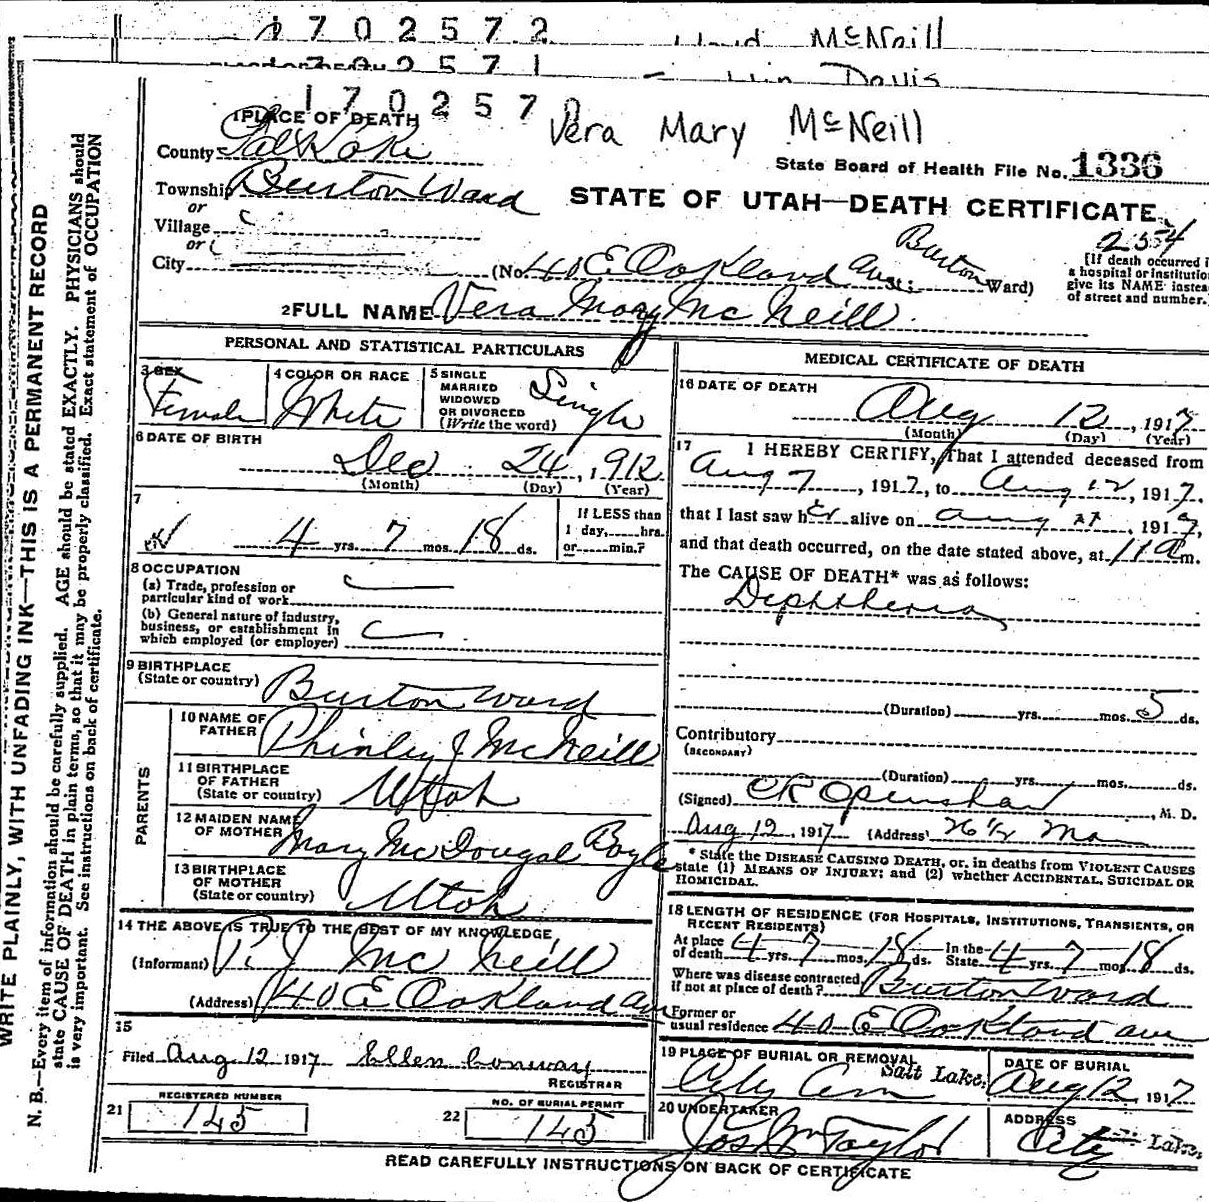 1702572 McNeill
702571 Davis
170257 Vera Mary McNeill
1 PLACE OF DEATH
County Salt Lake
State Board of Health File No. 1336
Township Burton Ward
or
STATE OF UTAH—DEATH CERTIFICATE
Village
or
254
City (No 40 E Oakland Ave; Burton Ward)
[If death occurred i
a hospital or institution
give its NAME instea
of street and number.]
2 FULL NAME Vera Mary Mc Neill
PERSONAL AND STATISTICAL PARTICULARS
3 SEX Female
4 COLOR OR RACE White
5 SINGLE
MARRIED
WIDOWED
OR DIVORCED
(Write the word) Single
6 DATE OF BIRTH
Dec 24, 1912
(Month) (Day) (Year)
7
4 yrs. 7 mos. 18 ds.
If LESS than
1 day, hrs.
or min.?
8 OCCUPATION
(a) Trade, profession or
particular kind of work
(b) General nature of industry,
business, or establishment in
which employed (or employer)
9 BIRTHPLACE
(State or country) Burton Ward
PARENTS
10 NAME OF
FATHER Phinley J McNeill
11 BIRTHPLACE
OF FATHER
(State or country) Utah
12 MAIDEN NAME
OF MOTHER Mary McDougal Boyle
13 BIRTHPLACE
OF MOTHER
(State or country) Utah
14 THE ABOVE IS TRUE TO THE BEST OF MY KNOWLEDGE
(Informant) P. J Mc Neill
(Address) 40 E Oakland Av
15
Filed Aug 12 1917 Ellen Conway
REGISTRAR
21 REGISTERED NUMBER
145
22 NO. OF BURIAL PERMIT
145
MEDICAL CERTIFICATE OF DEATH
16 DATE OF DEATH
Aug 12, 1917
(Month) (Day) (Year)
17 I HEREBY CERTIFY, That I attended deceased from
Aug 7, 1917, to Aug 12, 1917.
that I last saw her alive on Aug , 1917,
and that death occurred, on the date stated above, at 11 a m.
The CAUSE OF DEATH* was as follows:
Diphtheria
(Duration) yrs. mos. 5 ds.
Contributory
(SECONDARY)
(Duration) yrs. mos. ds.
(Signed) CR Openshaw, M. D.
Aug 12, 1917 (Address) Main
* State the DISEASE CAUSING DEATH, or, in deaths from VIOLENT CAUSES
state (1) MEANS OF INJURY; and (2) whether ACCIDENTAL, SUICIDAL OR
HOMICIDAL.
18 LENGTH OF RESIDENCE (FOR HOSPITALS, INSTITUTIONS, TRANSIENTS, OR
RECENT RESIDENTS)
At place
of death 4 yrs. 7 mos. 18 ds. In the
State 4 yrs. 7 mos. 18 ds.
Where was disease contracted
if not at place of death? Burton Ward
Former or
usual residence 40 E Oakland ave
19 PLACE OF BURIAL OR REMOVAL
City Cem Salt Lake.
DATE OF BURIAL
Aug 12, 1917
20 UNDERTAKER
Jos Wm Taylor
ADDRESS
City Lake.
READ CAREFULLY INSTRUCTIONS ON BACK OF CERTIFICATE
WRITE PLAINLY, WITH UNFADING INK—THIS IS A PERMANENT RECORD
N. B.—Every item of information should be carefully supplied. AGE should be stated EXACTLY. PHYSICIANS should
state CAUSE OF DEATH in plain terms, so that it may be properly classified. Exact statement of OCCUPATION
is very important. See instructions on back of certificate.